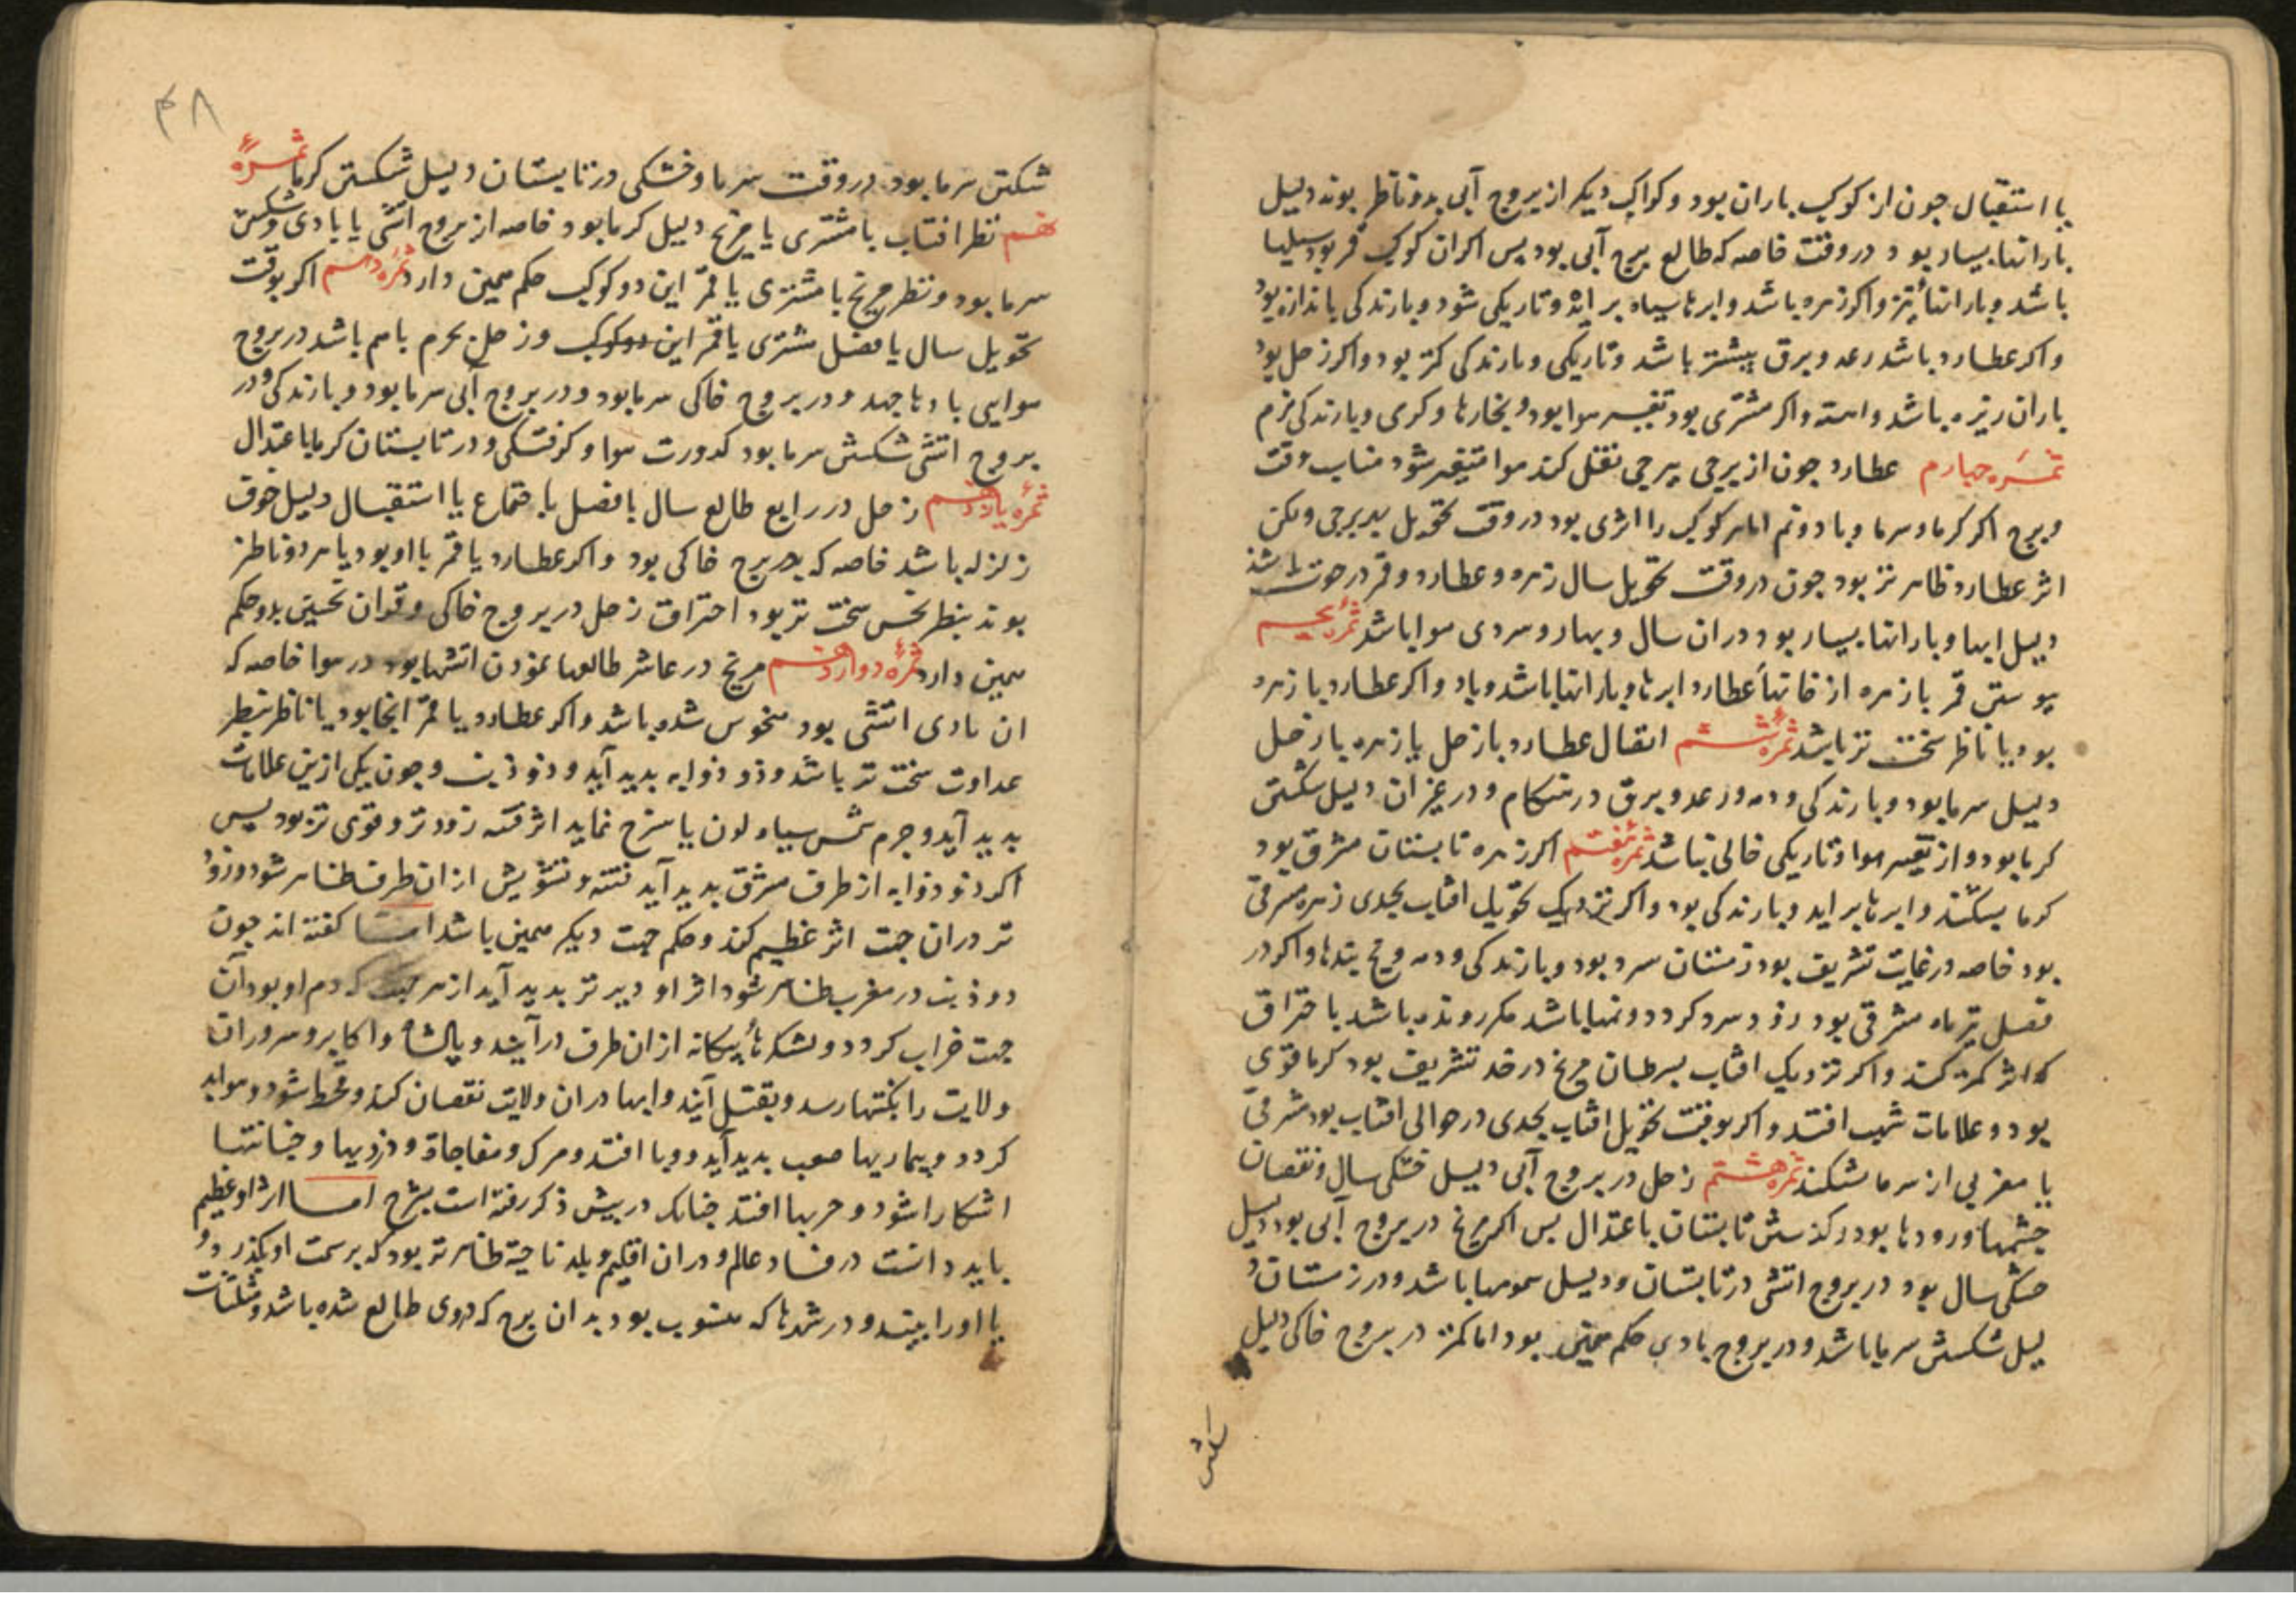 یا استقبال جون از کوکب باران بود و کواکب دیکر از بروج آبی بدو ناظر بوند دلیل
بارانها بسیار بود در وقت خاصه که طالع برج آبی بود بس اکر ان کوکب قمر بود سیلها
باشد و بارانها تیز و اکر زهره باشد و ابرها سیاه بر اید و تاریکی شود و بارندکی باندازه بود
و اکر عطارد باشد رعد و برق بیشتر باشد و تاریکی و بارندکی کمتر بود و اکر زحل بود
باران ریزه باشد و اهسته و اکر مشتری بود تغییر هوا بود و بخارها و کرمی و بارندکی نرم
ثمره جهارم عطارد جون از برجی ببرجی نقل کند هوا متغیر شود مناسب وقت
و برج اکر کرما و سرما و باد و نم اما هر کوکب را اثری بود در وقت تحویل ببرجی ولکن
اثر عطارد ظاهر تر بود جون در وقت تحویل سال زهره و عطارد و قمر در حوت باشند
دلیل ابها و بارانها بسیار بود در ان سال و بهار و سردی هوا باشد ثمره بنجم
پیوستن قمر با زهره از خانهاء عطارد ابرها و بارانها باشد و باد و اکر عطارد با زهره
بود یا ناظر سخت تر باشد ثمره ششم اتصال عطارد با زحل یا زهره با زحل
دلیل سرما بود و بارندکی و دمه و رعد و برق در هنکام و در غیر ان دلیل شکستن
کرما بود و از تغییر هوا و تاریکی خالی نباشد ثمره هفتم اکر زهره تابستان مشرقی بود
کرما بشکند و ابرها بر اید و بارندکی بود و اکر نزدیک تحویل افتاب بجدی زهره مشرقی
بود خاصه در غایت تشریق بود زمستان سرد بود و بارندکی و دمه و یخ بندها و اکر در
فصل تیر ماه مشرقی بود زود سرد کردد و نمها باشد مکر رونده باشد با حتراق
که اثر کمتر کند و اکر نزدیک افتاب بسرطان مریخ در حد تشریق بود کرما قوی
بود و علامات شهب افتد و اکر بوقت تحویل افتاب بجدی در حوالی افتاب بود مشرقی
یا مغربی از سرما بشکند ثمره هشتم زحل در بروج آبی دلیل خشکی سال و نقصان
جشمها و رودها بود و کذشتن تابستان باعتدال بس اکر مریخ در بروج آبی بود دلیل
خشکی سال بود در بروج اتشی در تابستان و دلیل سمومها باشد و در زمستان د
لیل شکستن سرما باشد و در بروج بادی حکم همین بود اما کمتر در بروج خاکی دلیل
شکستن
۴۸
شکستن سرما بود در وقت سرما و خشکی در تابستان دلیل شکستن کرما ثمره
نهم نظر افتاب با مشتری یا مریخ دلیل کرما بود خاصه از بروج اتشی یا بادی و شکستن
سرما بود و نظر مریخ با مشتری یا قمر این دو کوکب حکم همین دارد ثمره دهم اکر بوقت
تحویل سال یا فصل مشتری یا قمر این دو کوکب و زحل بجرم باهم باشد در بروج
هوایی بادها جهد و در بروج خاکی سرما بود و در بروج آبی سرما بود و بارندکی و در
بروج اتشی شکستن سرما بود کدورت هوا و کرفتکی و در تابستان کرما باعتدال
ثمره یازدهم زحل در رابع طالع سال یا فصل یا جتماع یا استقبال دلیل خوف
زلزله باشد خاصه که ببرج خاکی بود و اکر عطارد یا قمر با او بود یا هر دو ناظر
بوند بنظر نحس سخت تر بود احتراق زحل در بروج خاکی و قران نحسین بدو حکم
همین دارد ثمره دوازدهم مریخ در عاشر طالعها نمودن اتشها بود در هوا خاصه که
ان بادی اتشی بود منحوس شده باشد و اکر عطارد یا قمر انجا بود یا ناظر بنظر
عداوت سخت تر باشد و ذو ذوابه بدید آید و ذو ذنب و جون یکی ازین علامات
بدید آید و جرم شمس سیاه لون یا سرخ نماید اثر فتنه زودتر و قوی تر بود بس
اکر ذو ذوابه از طرف مشرق بدید آید فتنه و تشویش از ان طرف ظاهر شود و زود
تر در ان جهت اثر عظیم کند و حکم جهت دیکر همین باشد اما کفته اند جون
ذو ذنب در مغرب ظاهر شود اثر او دیر تر بدید آید از هر جهت که دم او بود آن
جهت خراب کردد و لشکرهاء بیکانه از ان طرف در آیند و پادشاه و اکابر و سروران
ولایت را نکبتها رسد و بقتل آیند و ابها در ان ولایت نقصان کند و قحط شود و هوا بد
کردد و بیماریها صعب بدید آید و وبا افتد و مرک و مفاجاة و دزدیها و خیانتها
اشکارا شود و حربها افتد جنانک در بیش ذکر رفته است بشرح اما اثر او عظیم
باید دانست در فساد عالم و در ان اقلیم و بلد ناحیة ظاهر تر بود که بر سمت او بکذرد و
یا او را بینند و در شهرها که منسوب بود بدان برج که دروی طالع شده باشد و مثلثات